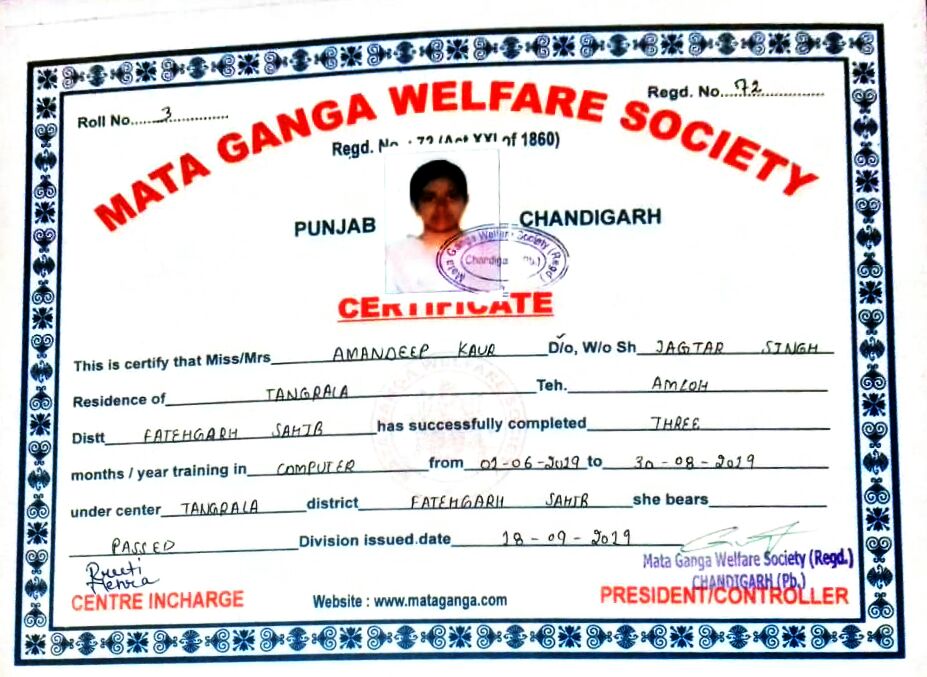 Roll No......3..............
Regd. No...72................
MATA GANGA WELFARE SOCIETY
Regd. No. : 72 (Act XXI of 1860)
PUNJAB CHANDIGARH
Mata Ganga Welfare Society (Regd)
CERTIFICATE
This is certify that Miss/Mrs AMANDEEP KAUR D/o, W/o Sh JAGTAR SINGH
Residence of TANGRALA Teh. AMLOH
Distt FATEHGARH SAHIB has successfully completed THREE
months / year training in COMPUTER from 01-06-2019 to 30-08-2019
under center TANGRALA district FATEHGARH SAHIB she bears
PASSED Division issued.date 18-09-2019
Mata Ganga Welfare Society (Regd.)
CHANDIGARH (Pb.)
CENTRE INCHARGE Website : www.mataganga.com PRESIDENT/CONTROLLER